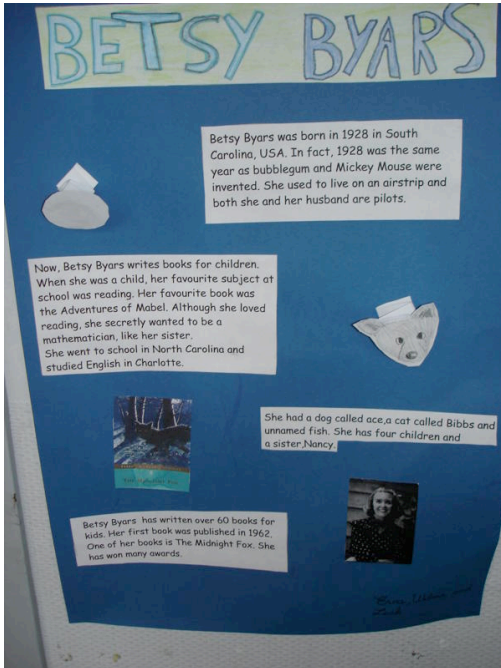 BETSY BYARS
Betsy Byars was born in 1928 in South
Carolina, USA. In fact, 1928 was the same
year as bubblegum and Mickey Mouse were
invented. She used to live on an airstrip and
both she and her husband are pilots.
Now, Betsy Byars writes books for children.
When she was a child, her favourite subject at
school was reading. Her favourite book was
the Adventures of Mabel. Although she loved
reading, she secretly wanted to be a
mathematician, like her sister.
She went to school in North Carolina and
studied English in Charlotte.
She had a dog called ace,a cat called Bibbs and
unnamed fish. She has four children and
a sister,Nancy.
Betsy Byars has written over 60 books for
kids. Her first book was published in 1962.
One of her books is The Midnight Fox. She
has won many awards.